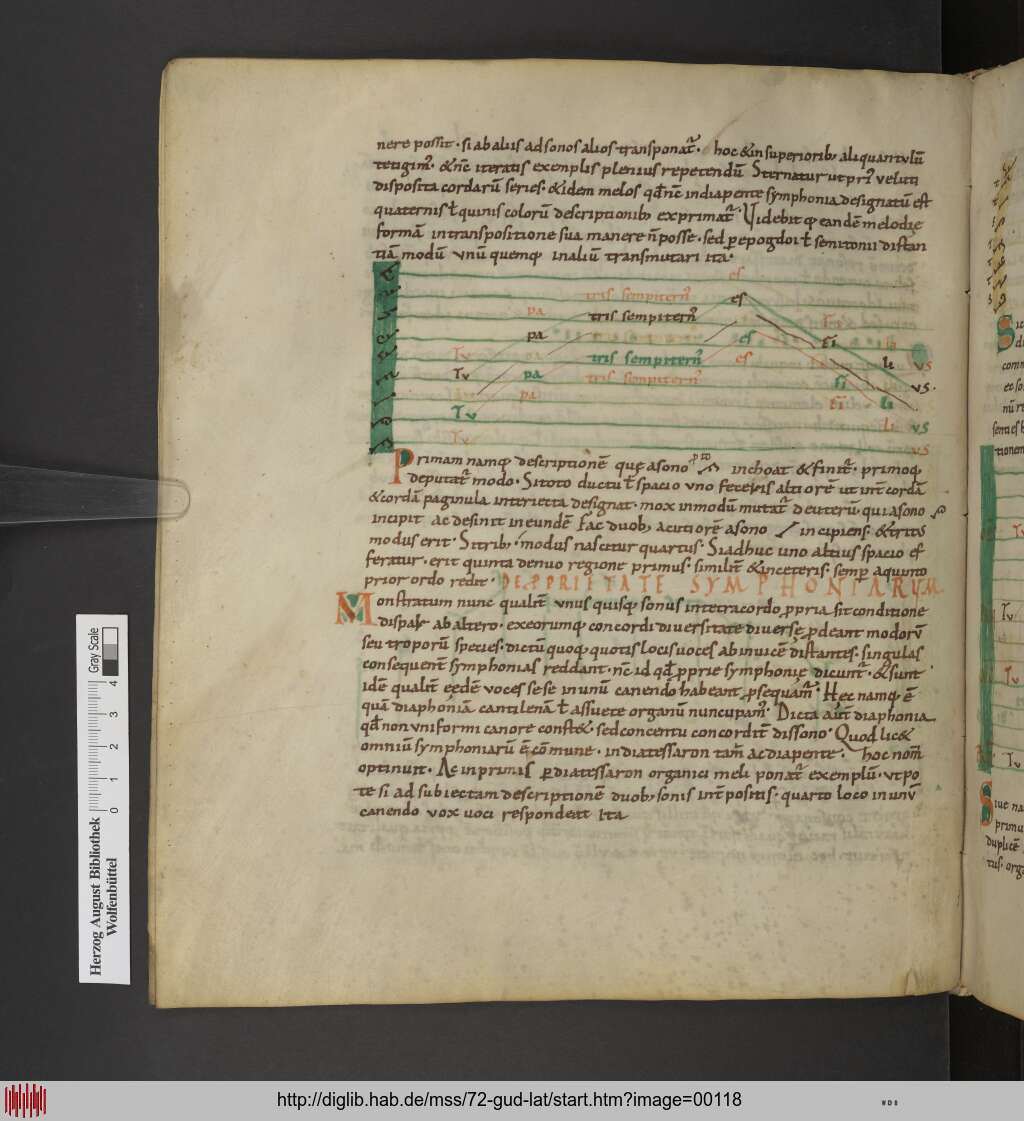 nere possit · si ab aliis ad sonos alios transponat̃ · hoc & in superiorib; aliquantulũ
tetigim᷒ · & nc̃ iteratis exemplis plenius repetendũ Sternatur ut pri᷒ veluti
disposita cordarũ series · & idem melos qđ nc̃ in diapente symphonia designatũ est
quaternis ł quinis colorũ descriptionib; exprimat̃ · Videbit ꝙ eandẽ melodie
formã in transpositione sua manere ñ posse · sed ꝑ epogdoi ł semitonii distan
tiã modũ vnũ quemꝙ in aliũ transmutari ita ·
es
tris sempitern᷒
es
pa
tris sempitern᷒
fi
pa
es
fi
li
Tu
pa
tris sempitern᷒
es
li
vs
Tu
pa
tris sempitern᷒
fi
vs ·
pa
fi
li
Tu
li
vs
Tu
vs
Primam namꝙ descriptionẽ quę a sono pto inchoat & finit̃ · primoꝙ
deputat̃ modo · Si toto ductu ł spacio uno feceris altiorẽ ut int̃ cordã
& cordã paginula interiecta designat · mox in modum mutat̃ deuterũ qui a sono
incipit ac desinit in eundẽ Fac duob; acutiorẽ a sono incipiens · & trit᷒
modus erit · Si trib; modus nascitur quartus · Si adhuc uno altius spacio ef
feratur · erit quinta denuo regione primus · similit̃ & in ceteris · semꝑ a quinto
prior ordo redit · DE PPRIETATE SYMPHONIARUM
Monstratum nunc qualit̃ vnus quisꝙ sonus in tetracordo ꝓpria sit conditione
dispar ab altero · ex eorumꝙ concordi diuersitate diuersę ꝓdeant modorũ
seu troporũ species · dictũ quoꝙ quotis locis uoces ab inuicẽ distantes · singulas
consequent̃ symphonias reddant · nc̃ id qđ ꝓprie symphonię dicunt̃ · & sunt
idẽ qualit̃ eędẽ voces sese in unũ canendo habeant ꝓsequam᷒ · Hec namꝙ ẽ
quã diaphoniã cantilenã ł assuete organũ nuncupam᷒ · Dicta aũt diaphonia
qđ non uniformi canore const& · sed concentu concordit̃ dissono · Quod lic&
omniũ symphoniarũ ẽ cõmune · in diatessaron tam̃ ac diapente · hoc nom̃
optinuit · Ac in primis ꝑ diatessaron organici meli ponat̃ exemplũ · vt po
te si ad subiectam descriptionẽ duob; sonis int̃positis · quarto loco in unũ
canendo vox uoci respondeat Ita
Herzog August Bibliothek
Wolfenbüttel
Gray Scale
0 1 2 3 4
http://diglib.hab.de/mss/72-gud-lat/start.htm?image=00118